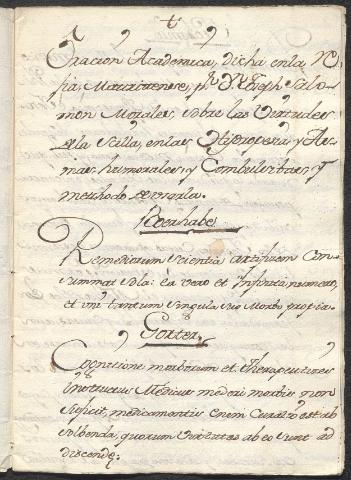 Oracion Academica, dicha en la Rl
sia, Matritense, pr Dn Joseph Salo
mon Morales, sobre las Virtudes
de la Scilla, en las Hydropesias y As
mas, humorales, y Combulsibas, y
methodo de usarla.
Boerhabe
Remediorum scientia artificem Con-
summat sola: ea vero est Infinita numero,
et uni tantum singula suo Morbo propria.
Gorter,
Cognitione morborum et Therapeutices
Instructus Medicus mederi morbis non
suficit, medicamentis enim Curatio est ab
solbenda, quorum virtutes ab eo sunt ad
discendę: